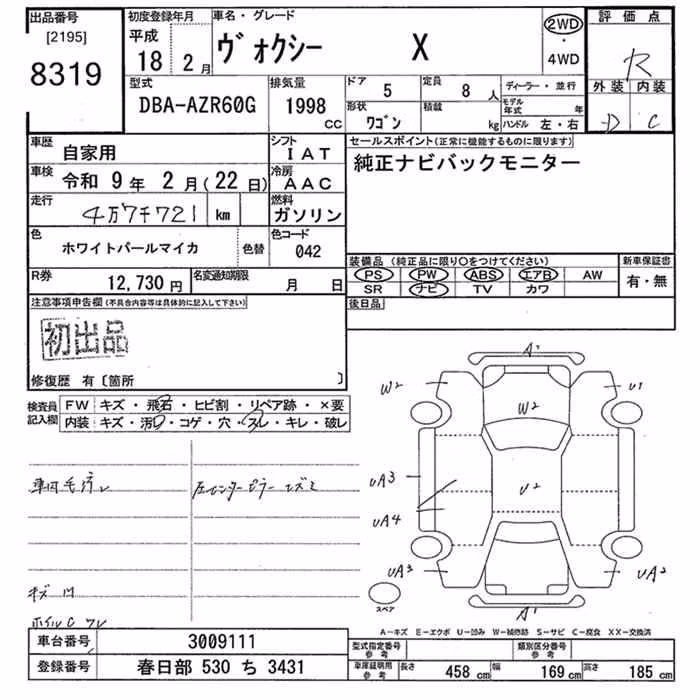 出品番号
[2195]
8319
初度登録年月
平成
18 2月
車名・グレード
ヴォクシー X
2WD
・
4WD
評価点
R
外装 内装
D C
型式
DBA-AZR60G
排気量
1998
CC
ドア
5
定員
8 人
形状
ワゴン
積載
kg
ディーラー・並行
モデル年式 年
ハンドル 左・右
車歴
自家用
シフト
IAT
車検 令和 9年 2月(22日)
冷房
AAC
走行
4万7千721 km
燃料
ガソリン
色
ホワイトパールマイカ
色替
色コード
042
R券
12,730円
名変通知期限
月 日
セールスポイント(正常に機能するものに限ります)
純正ナビバックモニター
装備品(純正品に限り○をつけてください)
PS PW ABS エアB AW
SR ナビ TV カワ
新車保証書
有・無
後日品
注意事項申告欄(不具合内容等は具体的に記入して下さい)
初出品
修復歴 有〔箇所 〕
検査員
記入欄
FW キズ・飛石・ヒビ割・リペア跡・×要
内装 キズ・汚レ・コゲ・穴・スレ・キレ・破レ
車内毛汚レ
左センターピラーキズミ
キズ
ホイルCワレ
A'
W2
U1
W2
UA3
U2
UA4
UA3
UA2
A'
スペア
A-キズ E-エクボ U-凹み W-補修跡 S-サビ C-腐食 XX-交換済
車台番号 3009111
登録番号 春日部 530 ち 3431
型式指定番号
参考
類別区分番号
参考
車庫証明用
参考
長さ 458 cm 幅 169 cm 高さ 185 cm